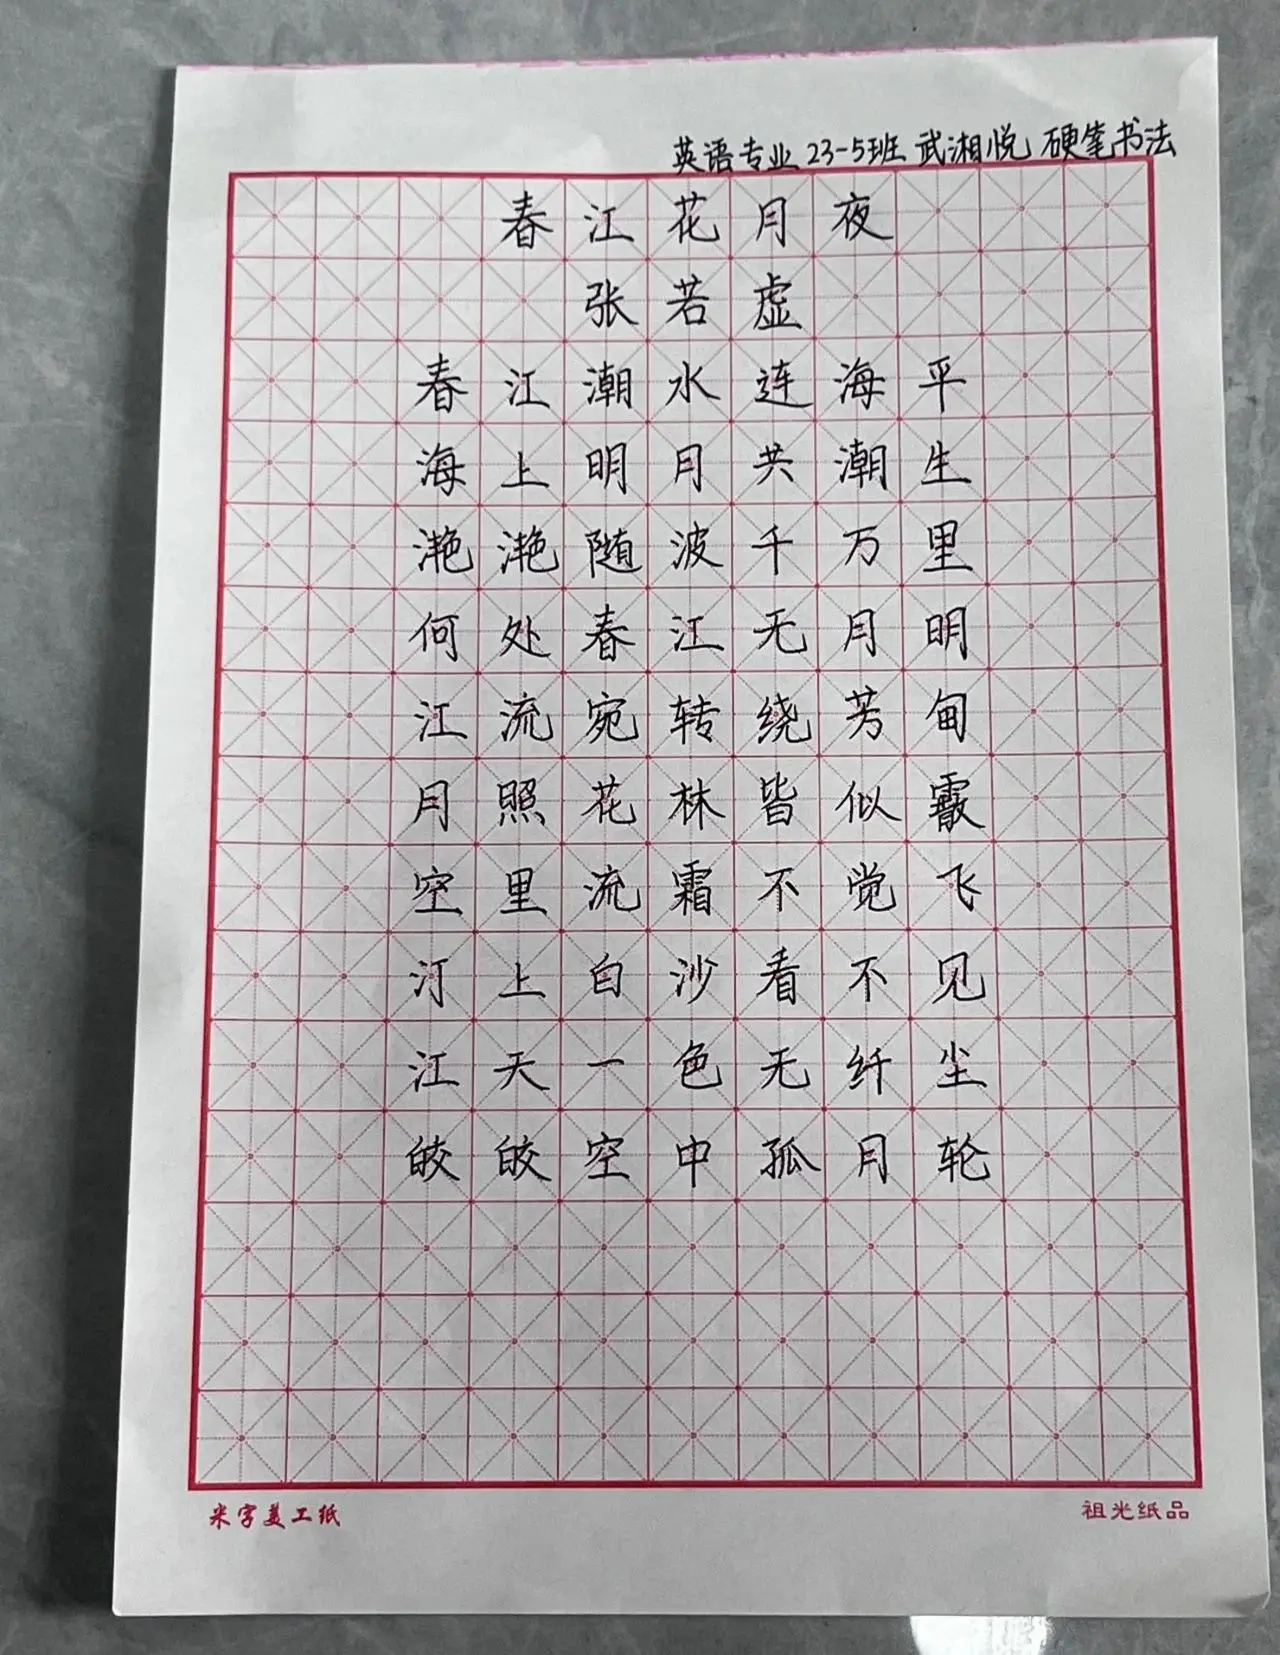 英语专业23-5班 武湘悦 硬笔书法
春江花月夜
张若虚
春江潮水连海平
海上明月共潮生
滟滟随波千万里
何处春江无月明
江流宛转绕芳甸
月照花林皆似霰
空里流霜不觉飞
汀上白沙看不见
江天一色无纤尘
皎皎空中孤月轮
米字美工纸
祖光纸品